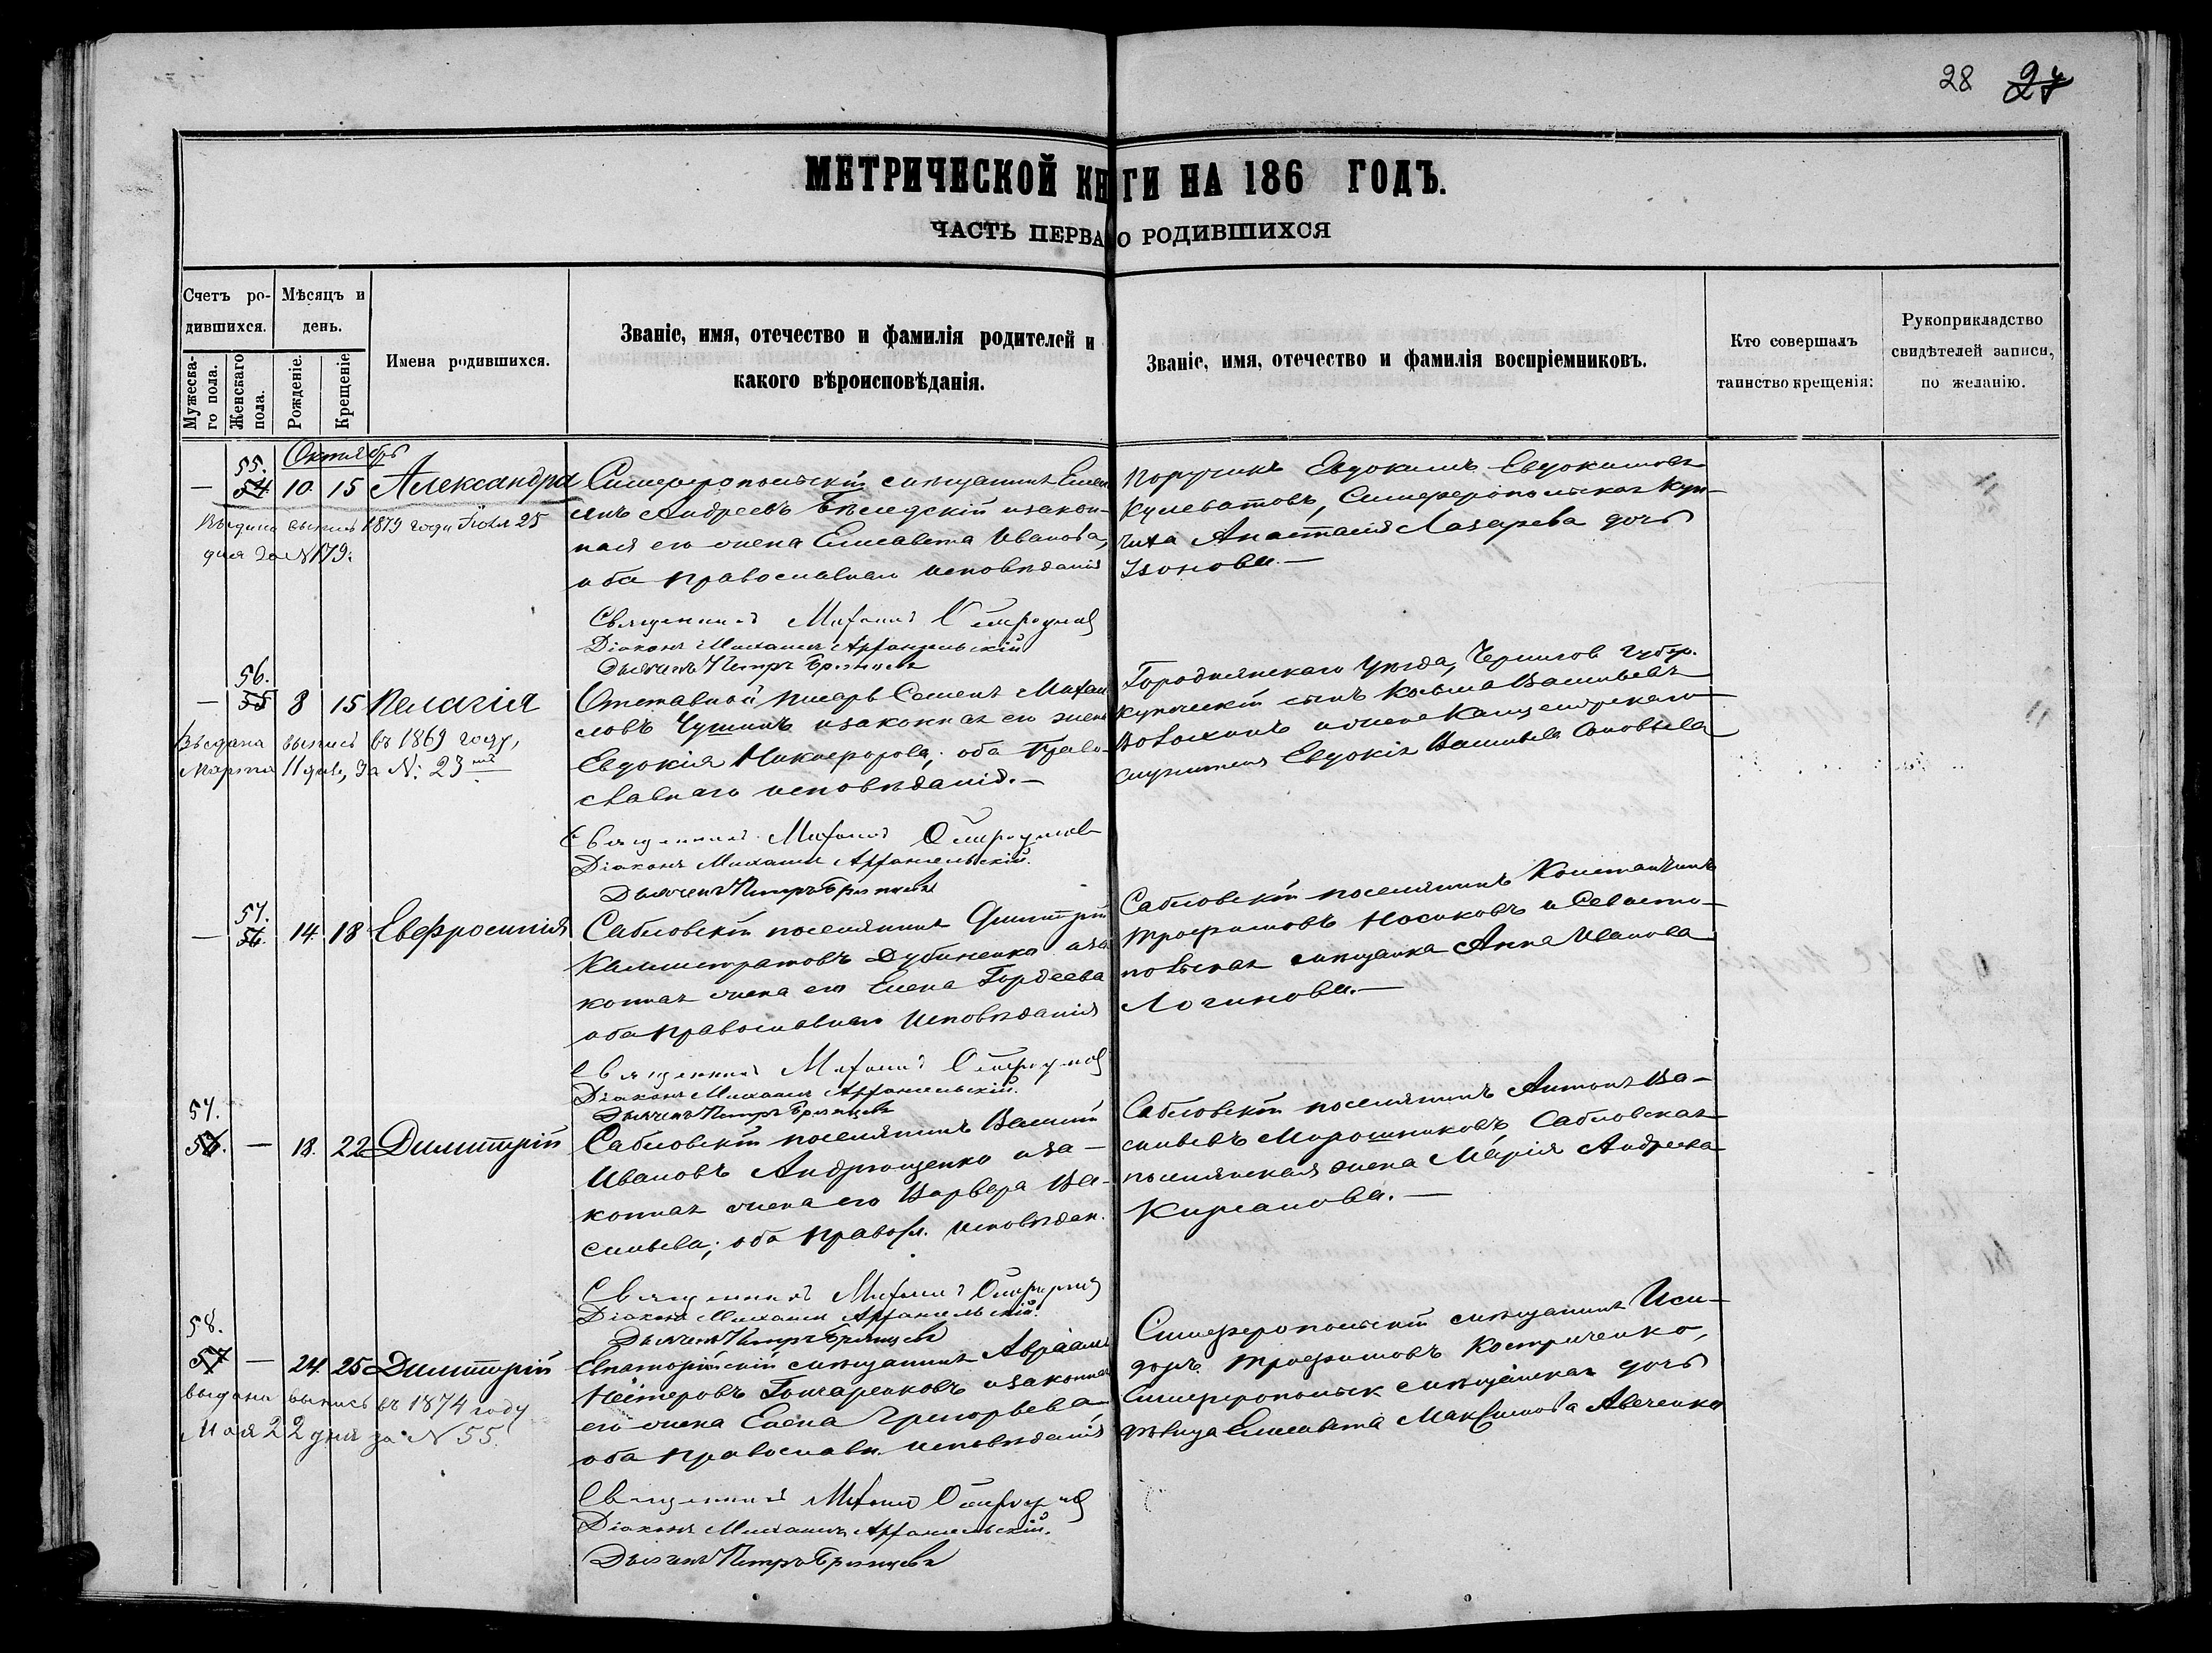 28 27
МЕТРИЧЕСКОЙ КНИГИ НА 186 ГОДЪ.
ЧАСТЬ ПЕРВАЯ О РОДИВШИХСЯ
Счетъ ро-
дившихся.
Мѣсяцъ и
день.
Мужеска-
го пола.
Женскаго
пола.
Рожденіе.
Крещеніе
Имена родившихся.
Званіе, имя, отечество и фамилія родителей и
какого вѣроисповѣданія.
Званіе, имя, отечество и фамилія воспріемниковъ.
Кто совершалъ
таинство крещенія:
Рукоприкладство
свидѣтелей записи,
по желанію.
Октябрь
55.
— 54 10. 15 Александра
Выдана выпись 1879 года Іюля 25
дня за № 179.
Симферопольскій мѣщанинъ Емел
янъ Андреевъ Бѣледскій и закон-
ная его жена Елисавета Иванова,
оба православнаго исповѣданія
Священникъ
Діаконъ Михаилъ Архангельскій
Дьячекъ Петръ Брянцевъ
Поручикъ Евдокимъ Евдокимовъ
Кулеватовъ, Симферопольская Куп-
чиха Анастасія Лазарева дочь
Изонова.—
56.
— 55 8 15 Пелагія
Выдана выпись въ 1869 году,
Марта 11 дня, за №: 23
Отставной писарь Семенъ Михай
ловъ Чушинъ и законная его жена
Евдокія Никифорова, оба Право-
славнаго исповѣданія.—
Священникъ
Діаконъ Михаилъ Архангельскій.
Дьячекъ Петръ Брянцевъ
Городнянскаго Уѣзда, Чернигов губер.
купеческій сынъ Козьма Васильевъ
Воложинъ и жена Канцелярскаго
служителя Евдокія Васильева Соловьева
57.
— 56. 14. 18 Евфросинія
Сабловскій поселянинъ Димитрій
Калистратовъ Дубиненко и за
конная жена его Елена Гордеева
оба православнаго Исповѣданія
Священникъ
Діаконъ Михаилъ Архангельскій.
Дьячекъ Петръ Брянцевъ
Сабловскій поселянинъ Константинъ
Трофимовъ Носиковъ и Севасто-
польская мѣщанка Анна Иванова
Логинова.—
57.
56. — 18. 22 Димитрій
Сабловскій поселянинъ Василій
Ивановъ Андрющенко и за-
конная жена его Варвара Ва-
сильева; оба правосл. исповѣдан.
Священникъ
Діаконъ Михаилъ Архангельскій.
Дьячекъ Петръ Брянцевъ
Сабловскій поселянинъ Антонъ Ва-
сильевъ Мирошниковъ, Сабловская
поселянская жена Марія Андреева
Кирсанова.—
58.
57 — 24. 25 Димитрій
выдана выпись въ 1874 году
Мая 22 дня за № 55.
Евпаторійскій мѣщанинъ Авраамъ
Петеровъ Гончаренковъ и законная
его жена Елена Григорьева
оба православн. исповѣданія
Священникъ
Діаконъ Михаилъ Архангельскій.
Дьячекъ Петръ Брянцевъ
Симферопольскій мѣщанинъ Иси-
доръ Трофимовъ Костриченко,
Симферопольск мѣщанская дочь
дѣвица Елисавета Максимова Авченко